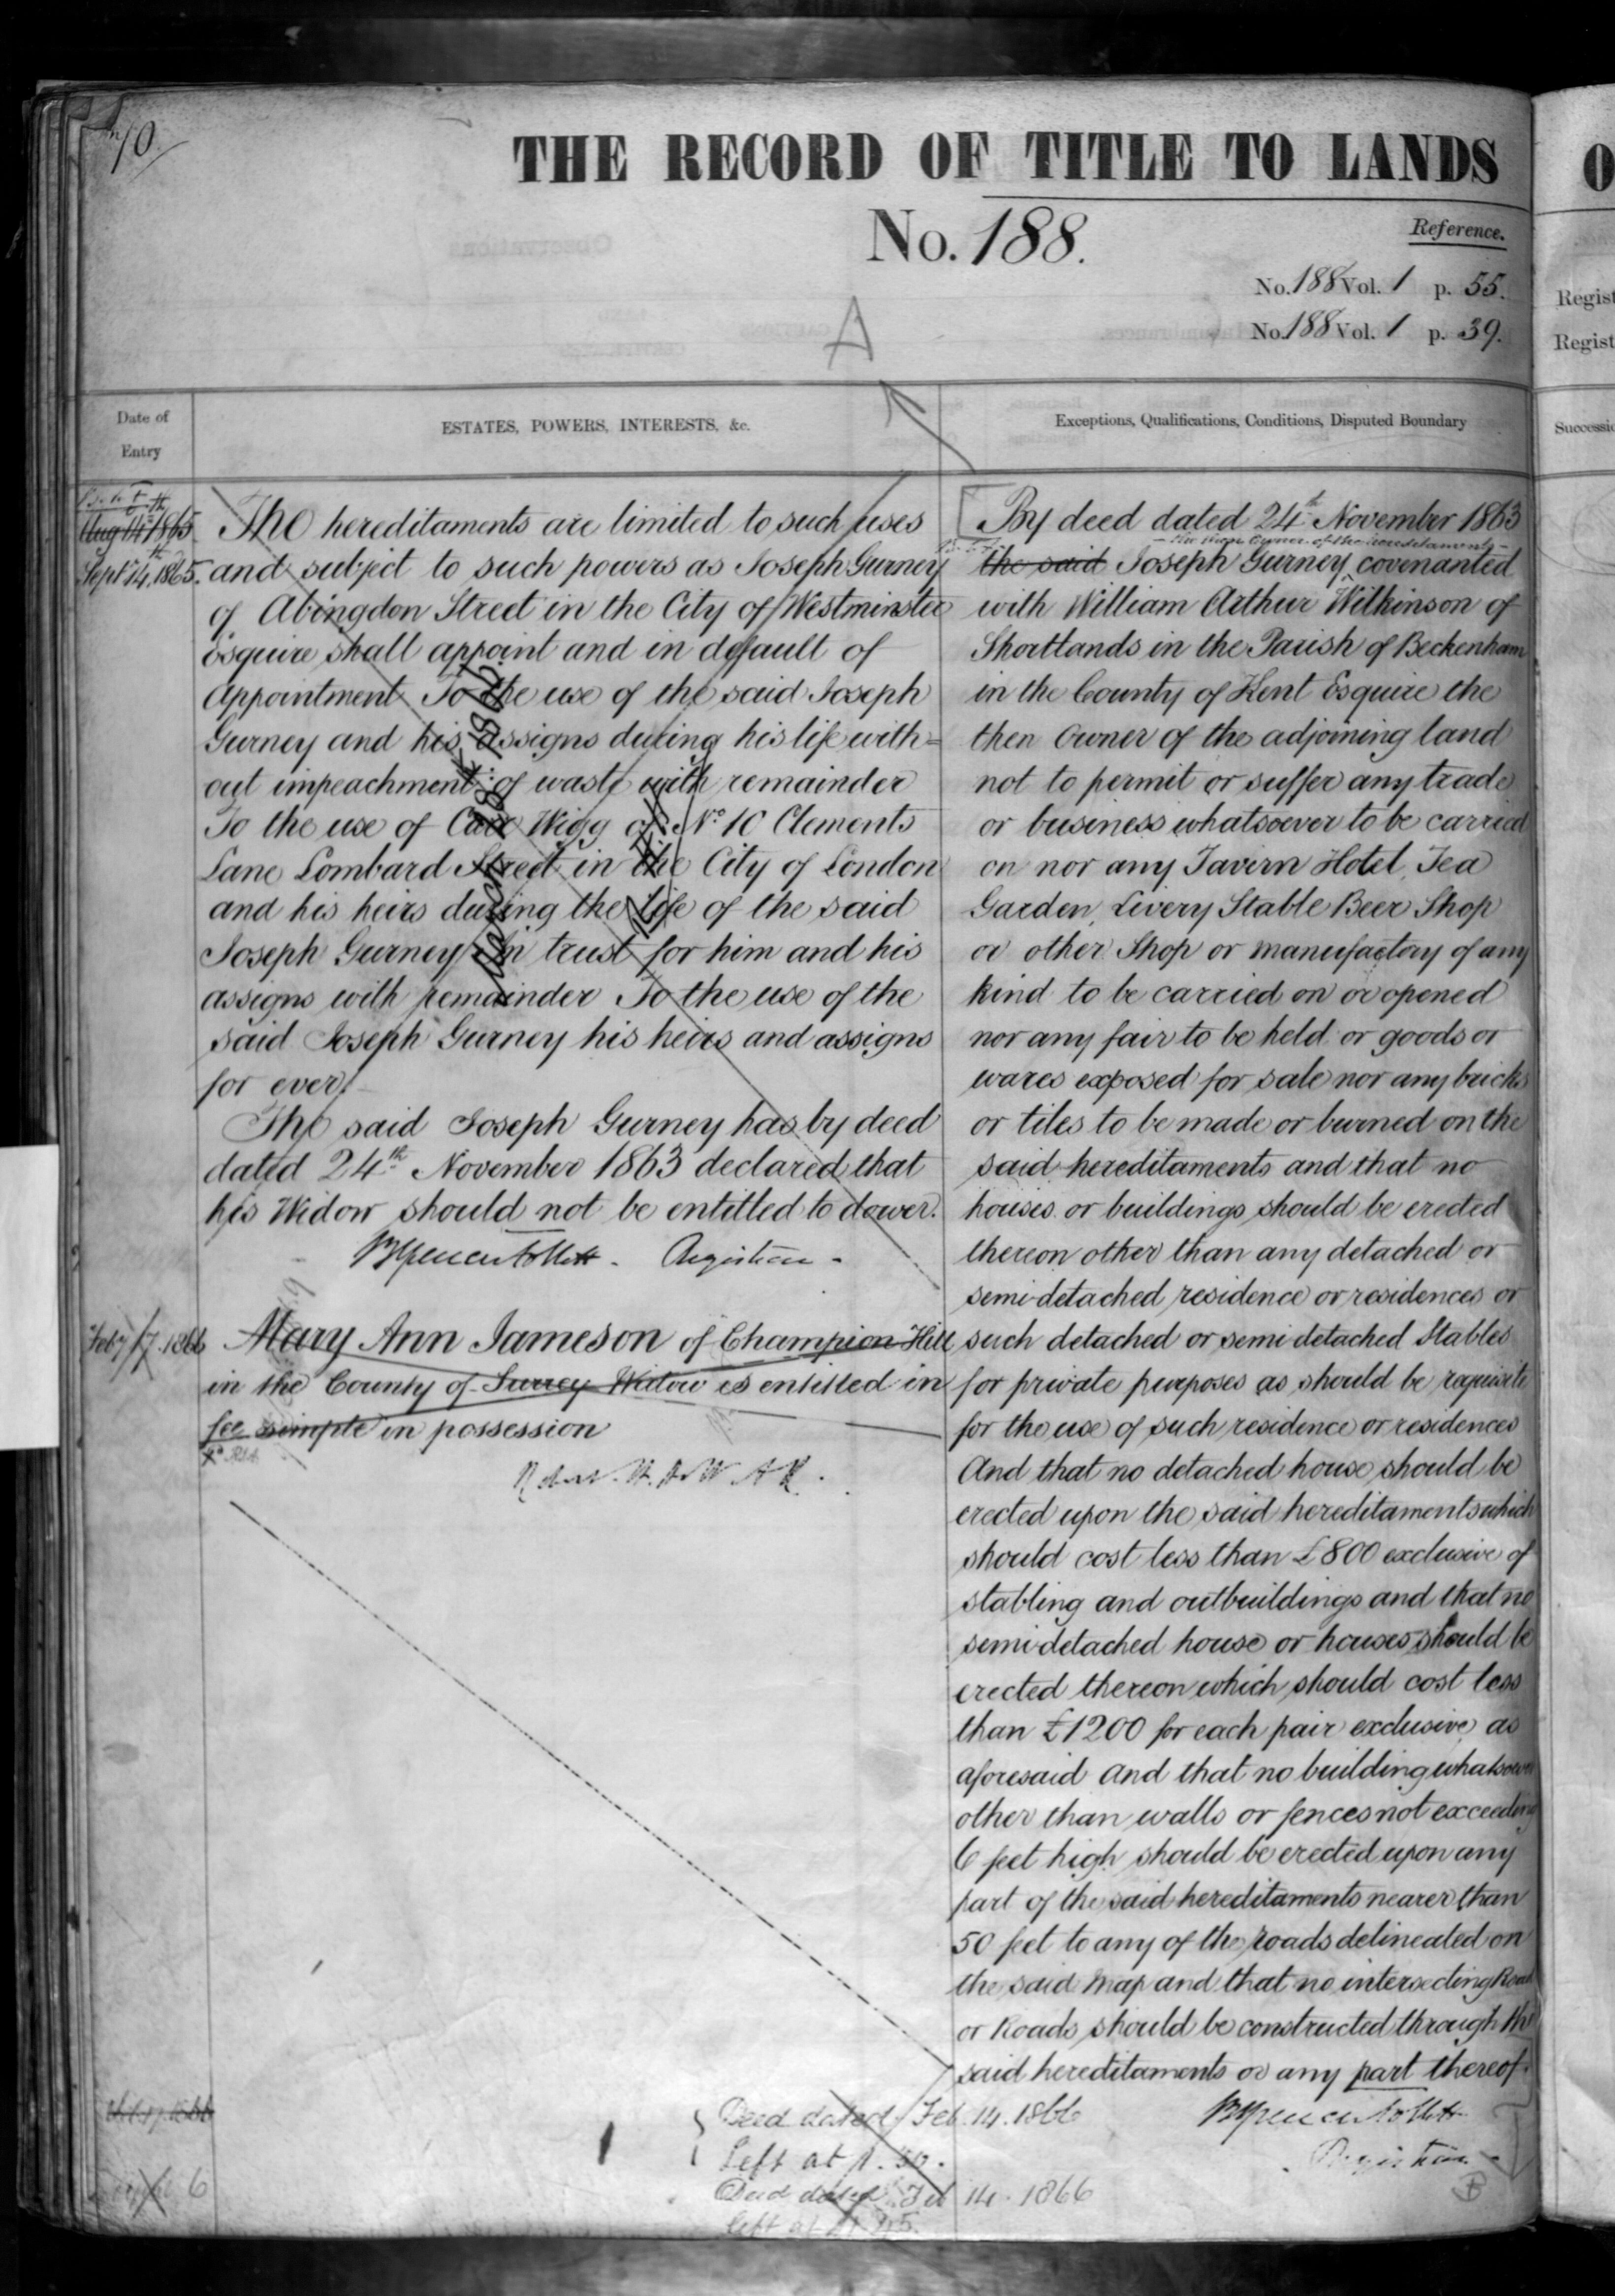 70.
THE RECORD OF TITLE TO LANDS
No. 188.
Reference.
No. 188 Vol. 1 p. 55.
No. 188 Vol. 1 p. 39.
A
Date of
Entry
ESTATES, POWERS, INTERESTS, &c.
Exceptions, Qualifications, Conditions, Disputed Boundary
Aug 14th 1865
Septr 14th 1865.
The hereditaments are limited to such uses
and subject to such powers as Joseph Gurney
of Abingdon Street in the City of Westminster
Esquire shall appoint and in default of
Appointment To the use of the said Joseph
Gurney and his assigns during his life with=
out impeachment of waste with remainder
To the use of Wigg of No. 10 Clements
Lane Lombard Street in the City of London
and his heirs during the Life of the said
Joseph Gurney In trust for him and his
assigns with remainder To the use of the
said Joseph Gurney his heirs and assigns
for ever.
The said Joseph Gurney has by deed
dated 24th November 1863 declared that
his Widow should not be entitled to dower.
Registrar.
Feby 17. 1866
Mary Ann Jameson of Champion Hill
in the County of Surrey Widow is entitled in
fee simple in possession
By deed dated 24th November 1863
the then Owner of the hereditaments
the said Joseph Gurney covenanted
with William Arthur Wilkinson of
Shortlands in the Parish of Beckenham
in the County of Kent Esquire the
then Owner of the adjoining land
not to permit or suffer any trade
or business whatsoever to be carried
on nor any Tavern Hotel, Tea
Garden, Livery Stable Beer Shop
or other Shop or manufactory of any
kind to be carried on or opened
nor any fair to be held or goods or
wares exposed for sale nor any bricks
or tiles to be made or burned on the
said hereditaments and that no
houses or buildings should be erected
thereon other than any detached or
semi-detached residence or residences or
such detached or semi detached Stables
for private purposes as should be requisite
for the use of such residence or residences
And that no detached house should be
erected upon the said hereditaments which
should cost less than £800 exclusive of
stabling and outbuildings and that no
semi-detached house or houses should be
erected thereon which should cost less
than £1200 for each pair exclusive as
aforesaid and that no building whatsoever
other than walls or fences not exceeding
6 feet high should be erected upon any
part of the said hereditaments nearer than
50 feet to any of the roads delineated on
the said Map and that no intersecting Road
or Roads should be constructed through the
said hereditaments or any part thereof.
Registrar
B
Deed dated Feb. 14. 1866
Left at 1.30.
Deed dated Feb 14. 1866
left at
6
O
Regist
Regist
Successio